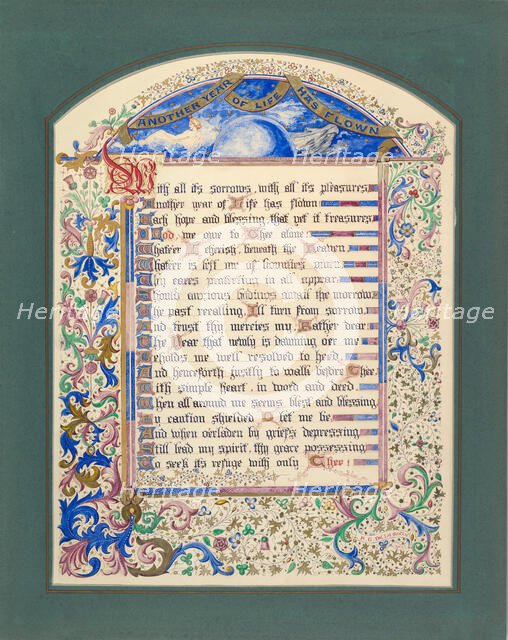 ANOTHER YEAR OF LIFE HAS FLOWN
With all it's sorrows, with all it's pleasures
Another year of Life has flown
Each hope and blessing that yet it treasures
God, we owe to Thee alone
Whate'er I cherish, beneath the Heaven,
Whate'er is left me of
Thy cares protecting in all appear
Should anxious bodings await the morrow,
The past recalling, I'll turn from sorrow,
And trust thy mercies my Father dear
The Year that newly is dawning o'er me
Beholds me well resolved to heed,
And henceforth justly to walk before Thee
With simple heart, in word and deed.
When all around me seems blest and blessing,
By caution shielded O let me be
And when o'erladen by griefs depressing
Still lead my spirit, thy grace possessing
To seek it's refuge with only Thee!
Heritage Heritage Heritage
Heritage Heritage Heritage
Heritage Heritage Heritage